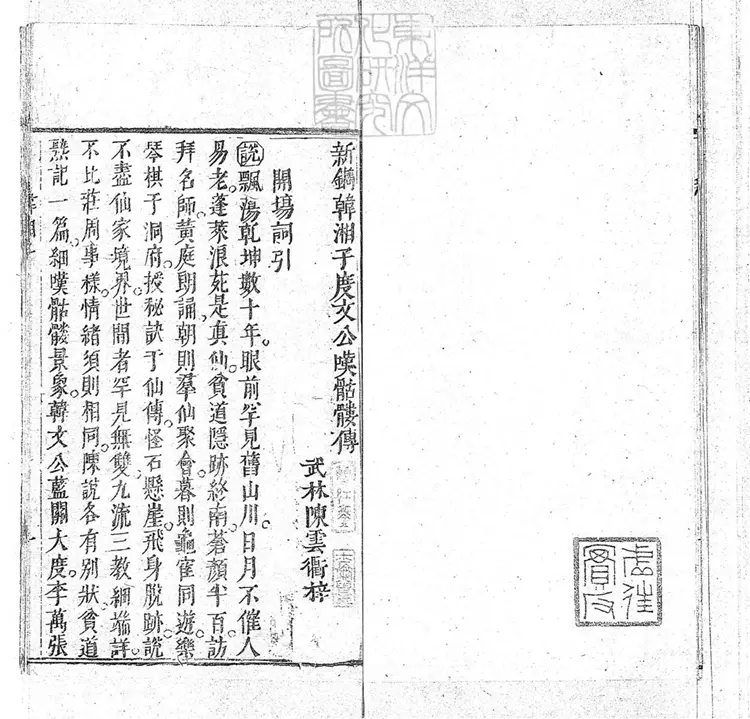 新鐫韓湘子度文公嘆骷髏傳
武林陳雲衢梓
開場詞引
說飄蕩乾坤數十年。眼前罕見舊山川。日月不催人
易老。蓬萊浪苑是真仙。貧道隱跡終南。蒼顏半百。訪
拜名師。黃庭朗誦。朝則羣仙聚會。暮則龜寉同遊。樂
琴棋于洞府。授秘訣于仙傳。怪石懸崖。飛身脫跡。說
不盡仙家境界。世間者罕見無雙。九流三教細端詳。
不比莊周事樣。情緒須則相同。陳說各有別狀。貧道
熬記一篇。細嘆骷髏景象。韓文公藍關大度。李萬張
東洋文
化研究
所圖書